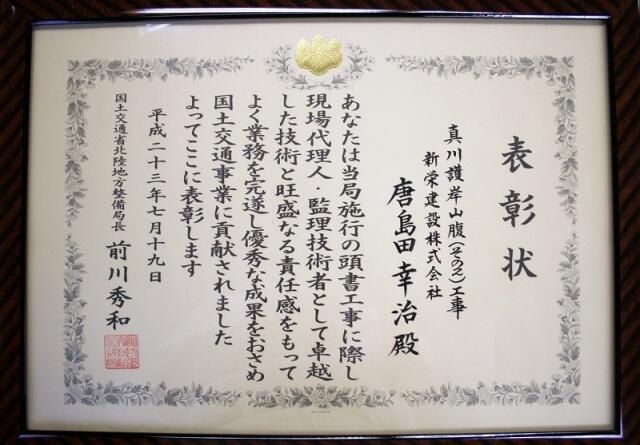 表彰状
真川護岸山腹(その2)工事
新栄建設株式会社
唐島田幸治殿
あなたは当局施行の頭書工事に際し
現場代理人・監理技術者として卓越
した技術と旺盛なる責任感をもって
よく業務を完遂し優秀な成果をおさめ
国土交通事業に貢献されました
よってここに表彰します
平成二十三年七月十九日
国土交通省北陸地方整備局長
前川秀和